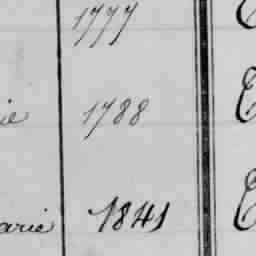 1777
ie 1788
arie 1841